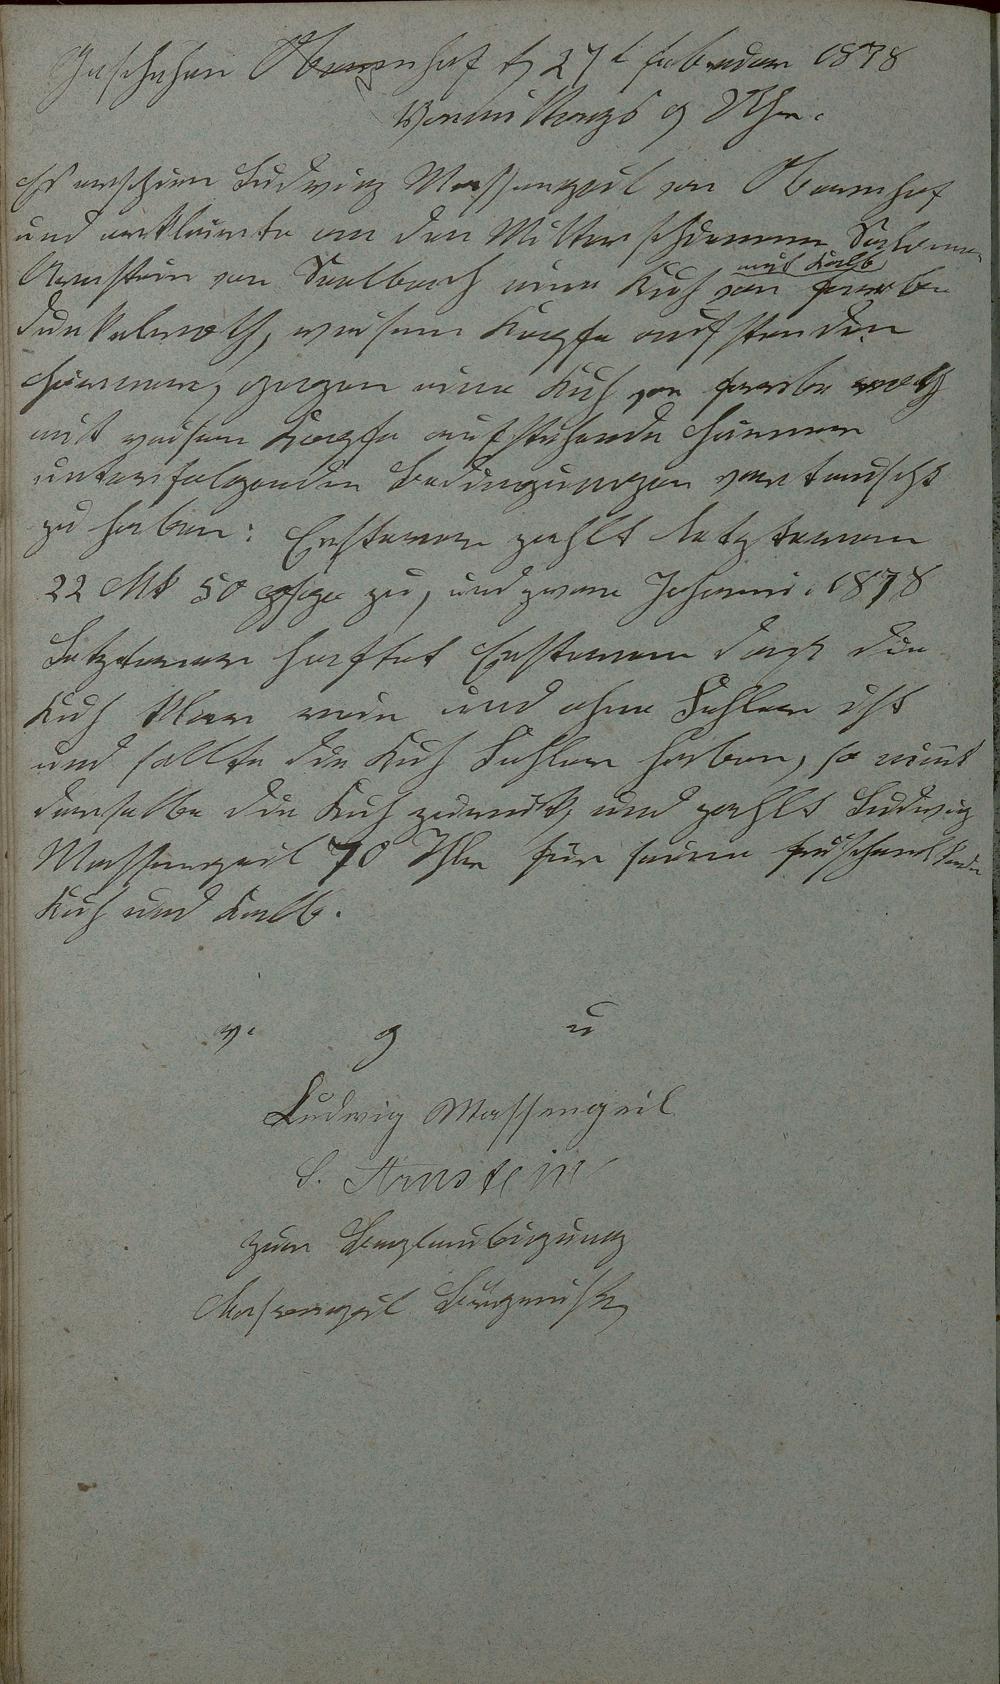 Geschehen Obernhof d 27t Februar 1878
Vormittags 9 Uhr.
Es erschien Ludwig Massengeil von Obernhof
und erklärte an den Mitterschienenen Salomon
Arnstein von Seelbach eine Kuh mit Kalb von Farbe
dunkelroth, weisem Kopfe aufstenden
Hörnern, gegen eine Kuh von Farbe roth
mit weisem Kopfe aufstehende Hörner
unter folgenden Bedingungen vertauscht
zu haben: Ersterer zahlt letzterem
22 Mk 50 zu, und zwar Johanni 1878
Letzterer haftet Ersterem dass die
Kuh klar rein und ohne Fehler ist
und sollte die Kuh Fehler haben, so nimt
derselbe die Kuh zurück und zahlt Ludwig
Massengeil 70 Thlr für seine
Kuh und Kalb.
v. g u
Ludwig Massengeil
S. Arnstein
zur Beglaubigung
Massengeil Bürgermstr